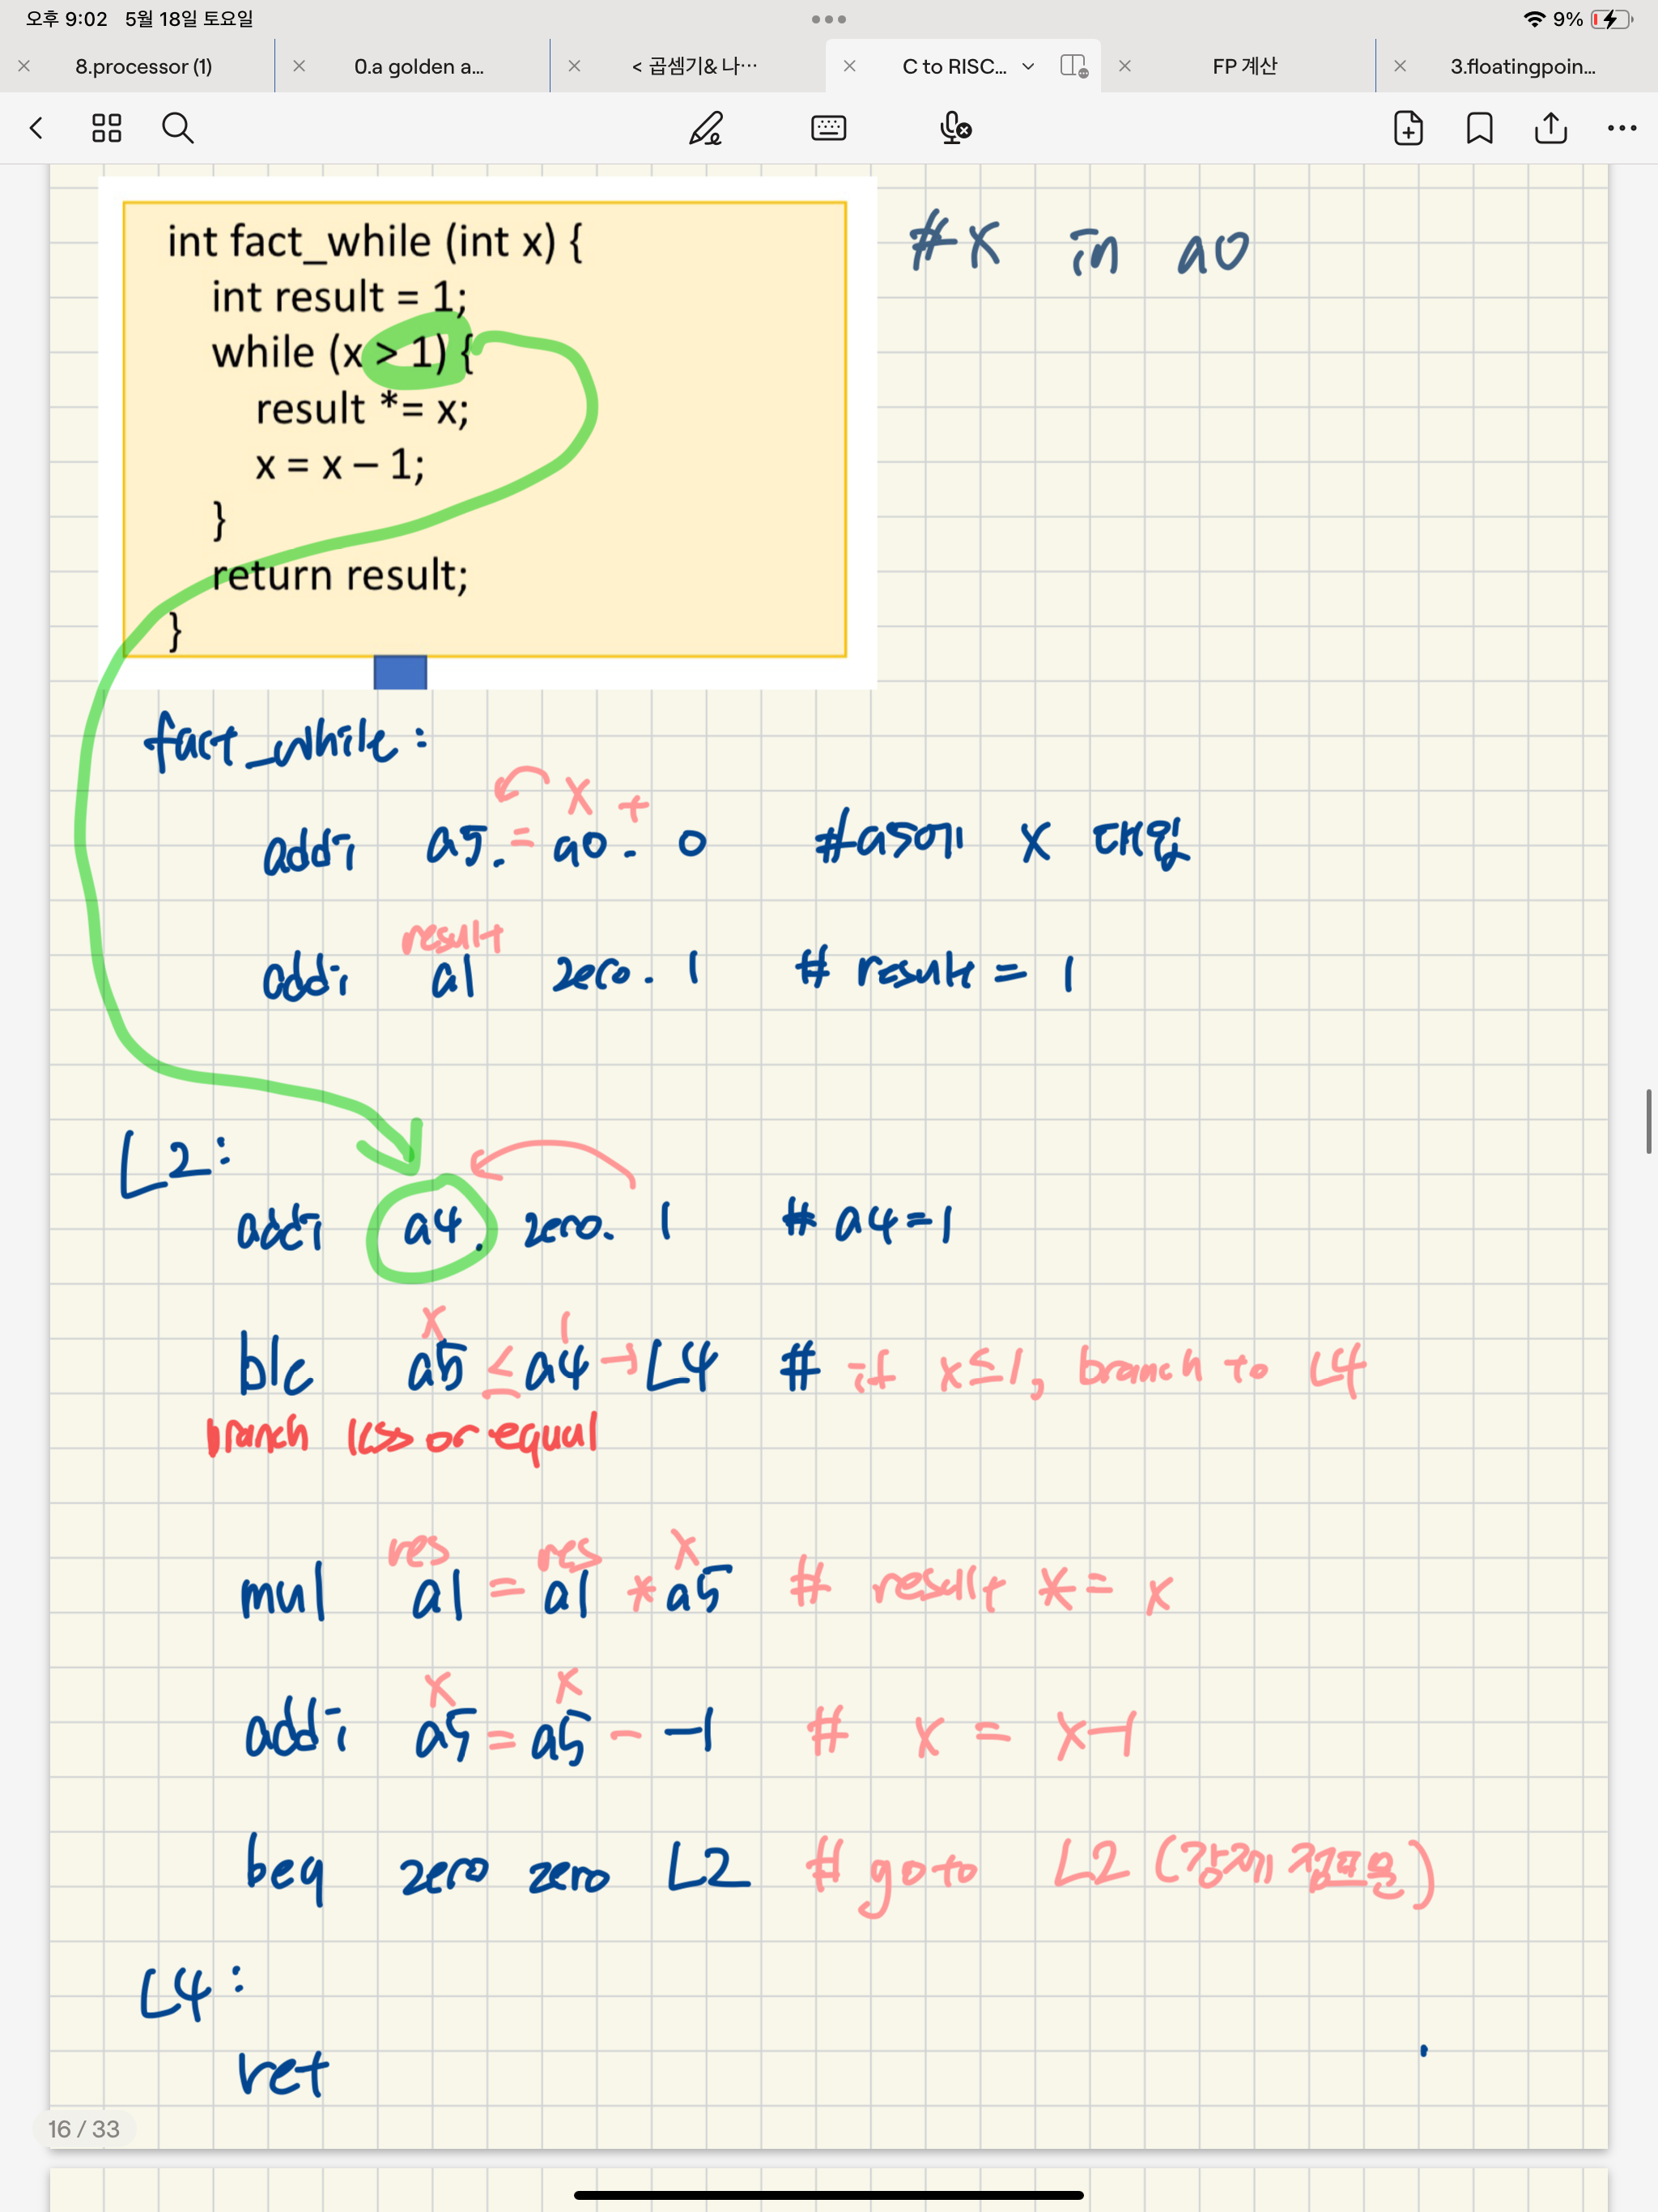 오후 9:02 5월 18일 토요일
9%
8.processor (1)
0.a golden a...
< 곱셈기& 나⋯
C to RISC...
FP 계산
3.floatingpoin...
int fact_while (int x) {
int result = 1;
while (x > 1) {
result *= x;
x = x – 1;
}
return result;
}
# x in a0
fact_while :
x +
addi a5. = a0. 0 #a5에 x 대입
result
addi a1 zero. 1 # result = 1
L2:
addi a4. zero. 1 # a4=1
x 1
ble a5 ≤ a4 → L4 # if x≤1, branch to L4
branch less or equal
res res x
mul a1 = a1 * a5 # result *= x
x x
addi a5 = a5 - -1 # x = x-1
beq zero zero L2 # go to L2 (강제
L4:
ret
16 / 33